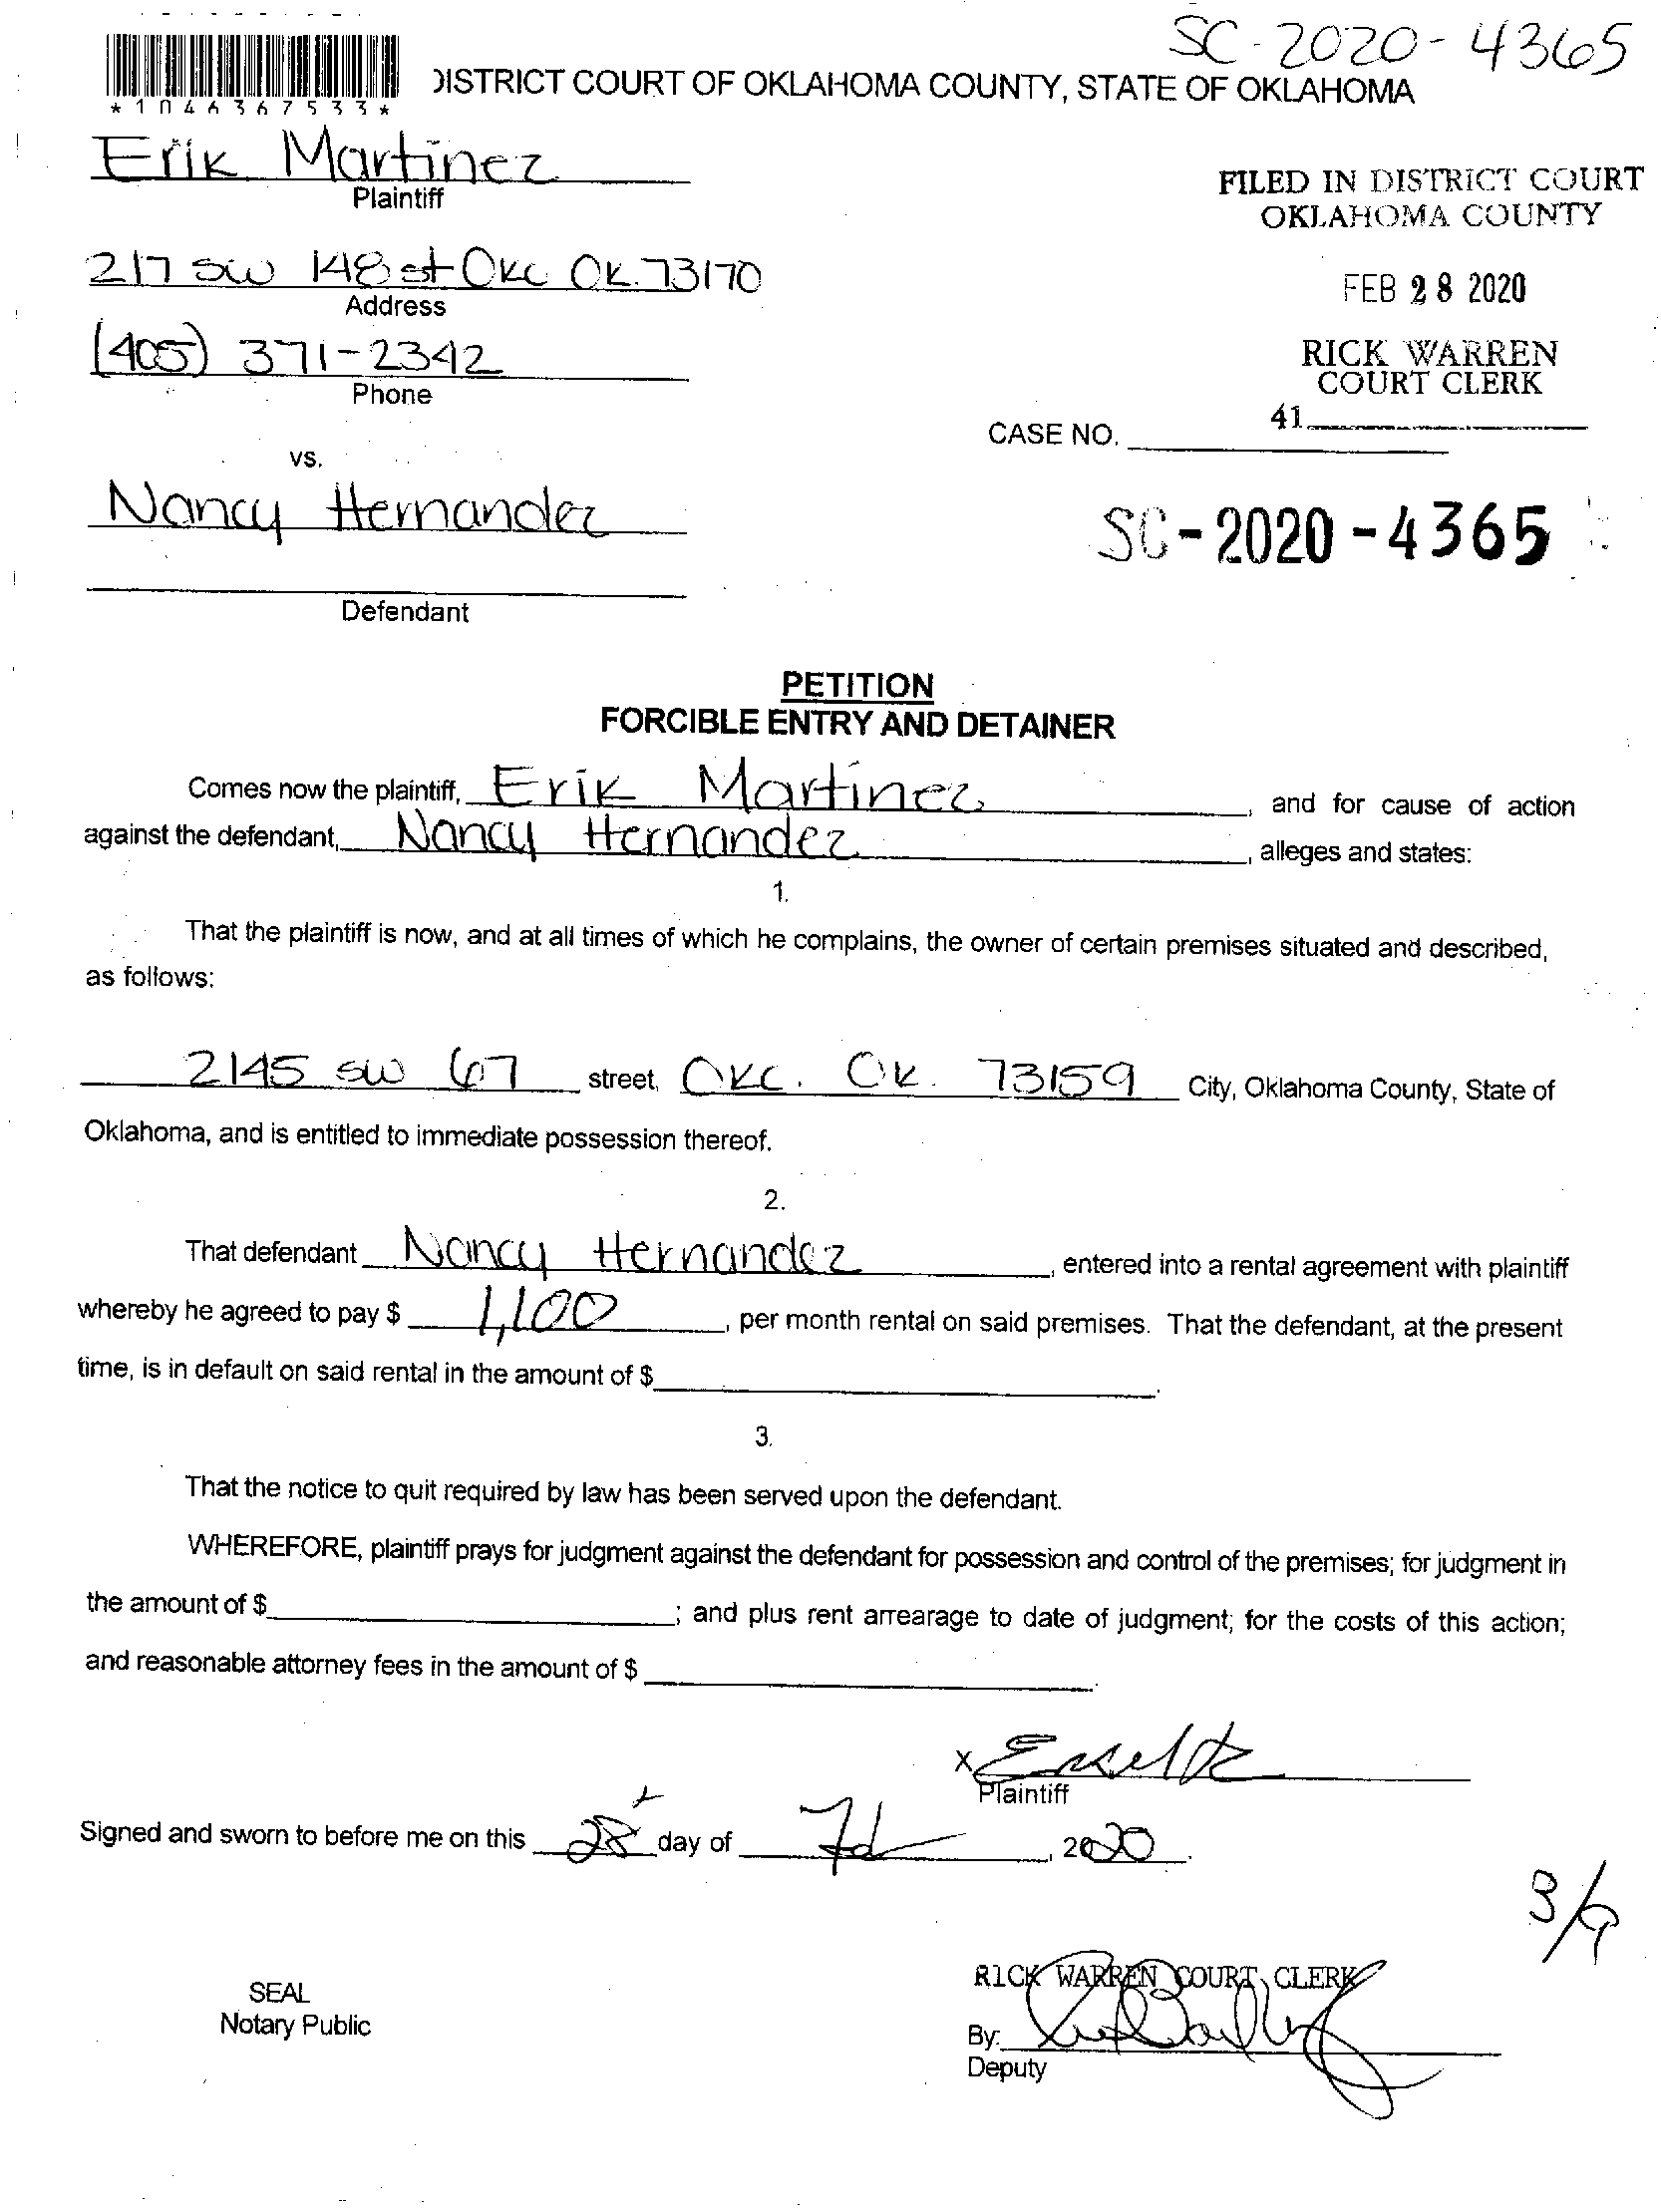 SC-2020-4365
DISTRICT COURT OF OKLAHOMA COUNTY, STATE OF OKLAHOMA
*1046367533*
Erik Martinez
Plaintiff
FILED IN DISTRICT COURT
OKLAHOMA COUNTY
217 SW 148 st OKC OK. 73170
Address
FEB 28 2020
(405) 371-2342
Phone
RICK WARREN
COURT CLERK
41
CASE NO.
vs.
Nancy Hernandez
SC-2020-4365
Defendant
PETITION
FORCIBLE ENTRY AND DETAINER
Comes now the plaintiff, Erik Martinez, and for cause of action
against the defendant, Nancy Hernandez, alleges and states:
1.
That the plaintiff is now, and at all times of which he complains, the owner of certain premises situated and described,
as follows:
2145 SW 67 street, OKC. OK. 73159 City, Oklahoma County, State of
Oklahoma, and is entitled to immediate possession thereof.
2.
That defendant Nancy Hernandez, entered into a rental agreement with plaintiff
whereby he agreed to pay $ 1,100, per month rental on said premises. That the defendant, at the present
time, is in default on said rental in the amount of $.
3.
That the notice to quit required by law has been served upon the defendant.
WHEREFORE, plaintiff prays for judgment against the defendant for possession and control of the premises; for judgment in
the amount of $; and plus rent arrearage to date of judgment; for the costs of this action;
and reasonable attorney fees in the amount of $.
X
Plaintiff
Signed and sworn to before me on this 28 day of , 2020.
RICK WARREN COURT CLERK
SEAL
Notary Public
By:
Deputy